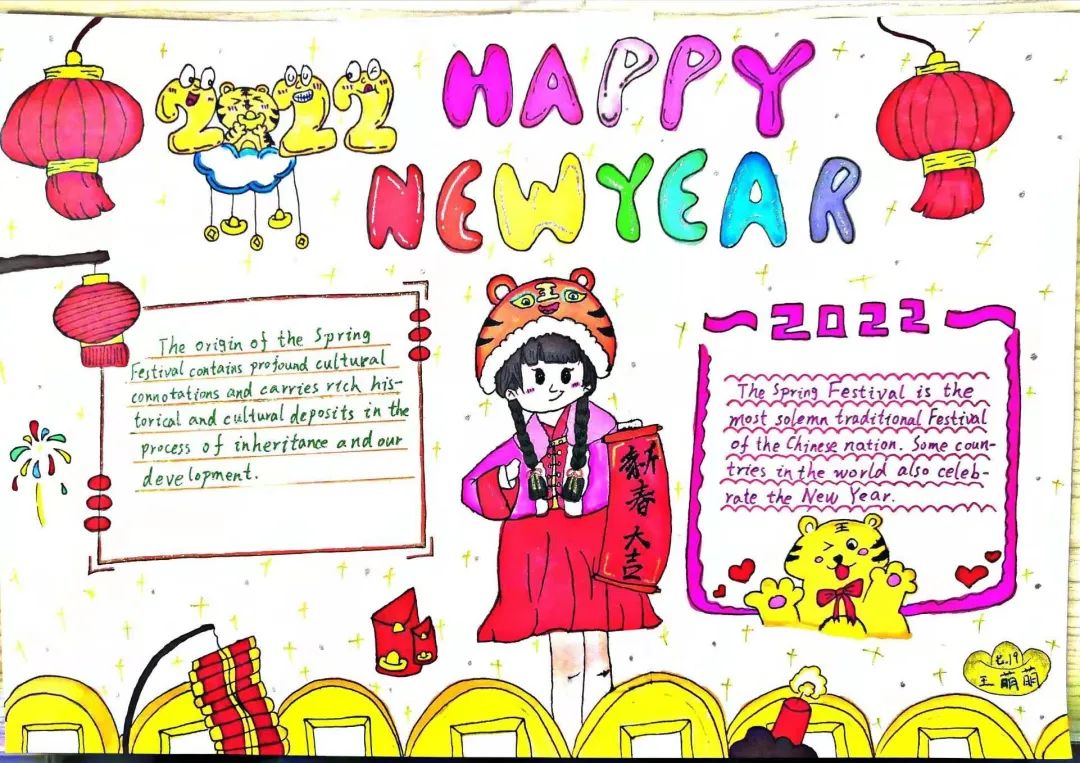 2022
HAPPY
NEW YEAR
The origin of the Spring
Festival contains profound cultural
connotations and carries rich his-
torical and cultural deposits in the
process of inheritance and our
development.
王
新春大吉
2022
The Spring Festival is the
most solemn traditional Festival
of the Chinese nation. Some coun-
tries in the world also celeb-
rate the New Year.
王
七.19
王萌萌